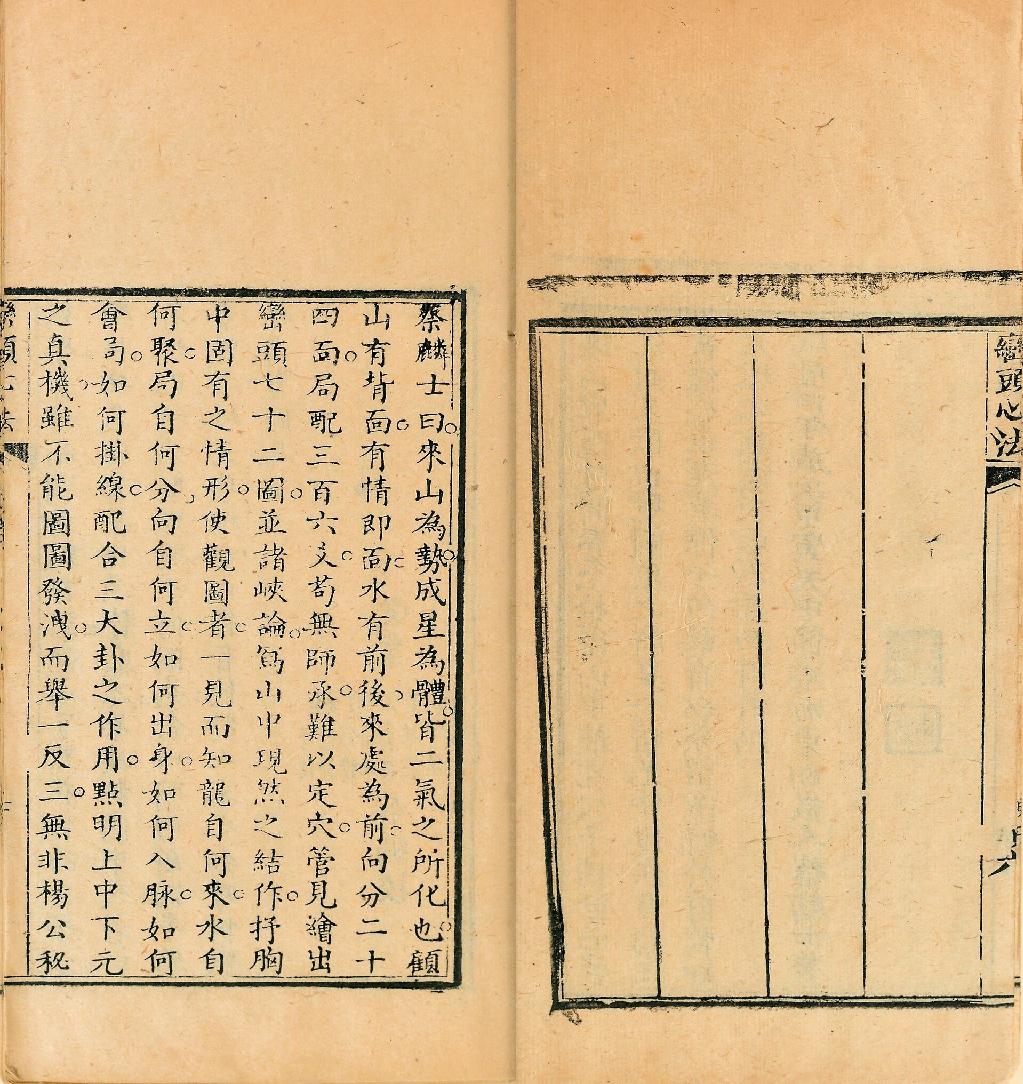 巒頭心法
蔡麟士曰。來山為勢。成星為體。皆二氣之所化也。顧
山有背面。有情即面。水有前後。來處為前。向分二十
四面。局配三百六爻。苟無師承。難以定穴。管見繪出
巒頭七十二圖。並諸峽論。寫山中現然之結作。抒胸
中固有之情形。使觀圖者。一見而知龍自何來。水自
何聚。局自何分。向自何立。如何出身。如何入脉。如何
會局。如何掛線。配合三大卦之作用。點明上中下元
之真機。雖不能圖圖發洩。而舉一反三。無非楊公秘
巒頭心法